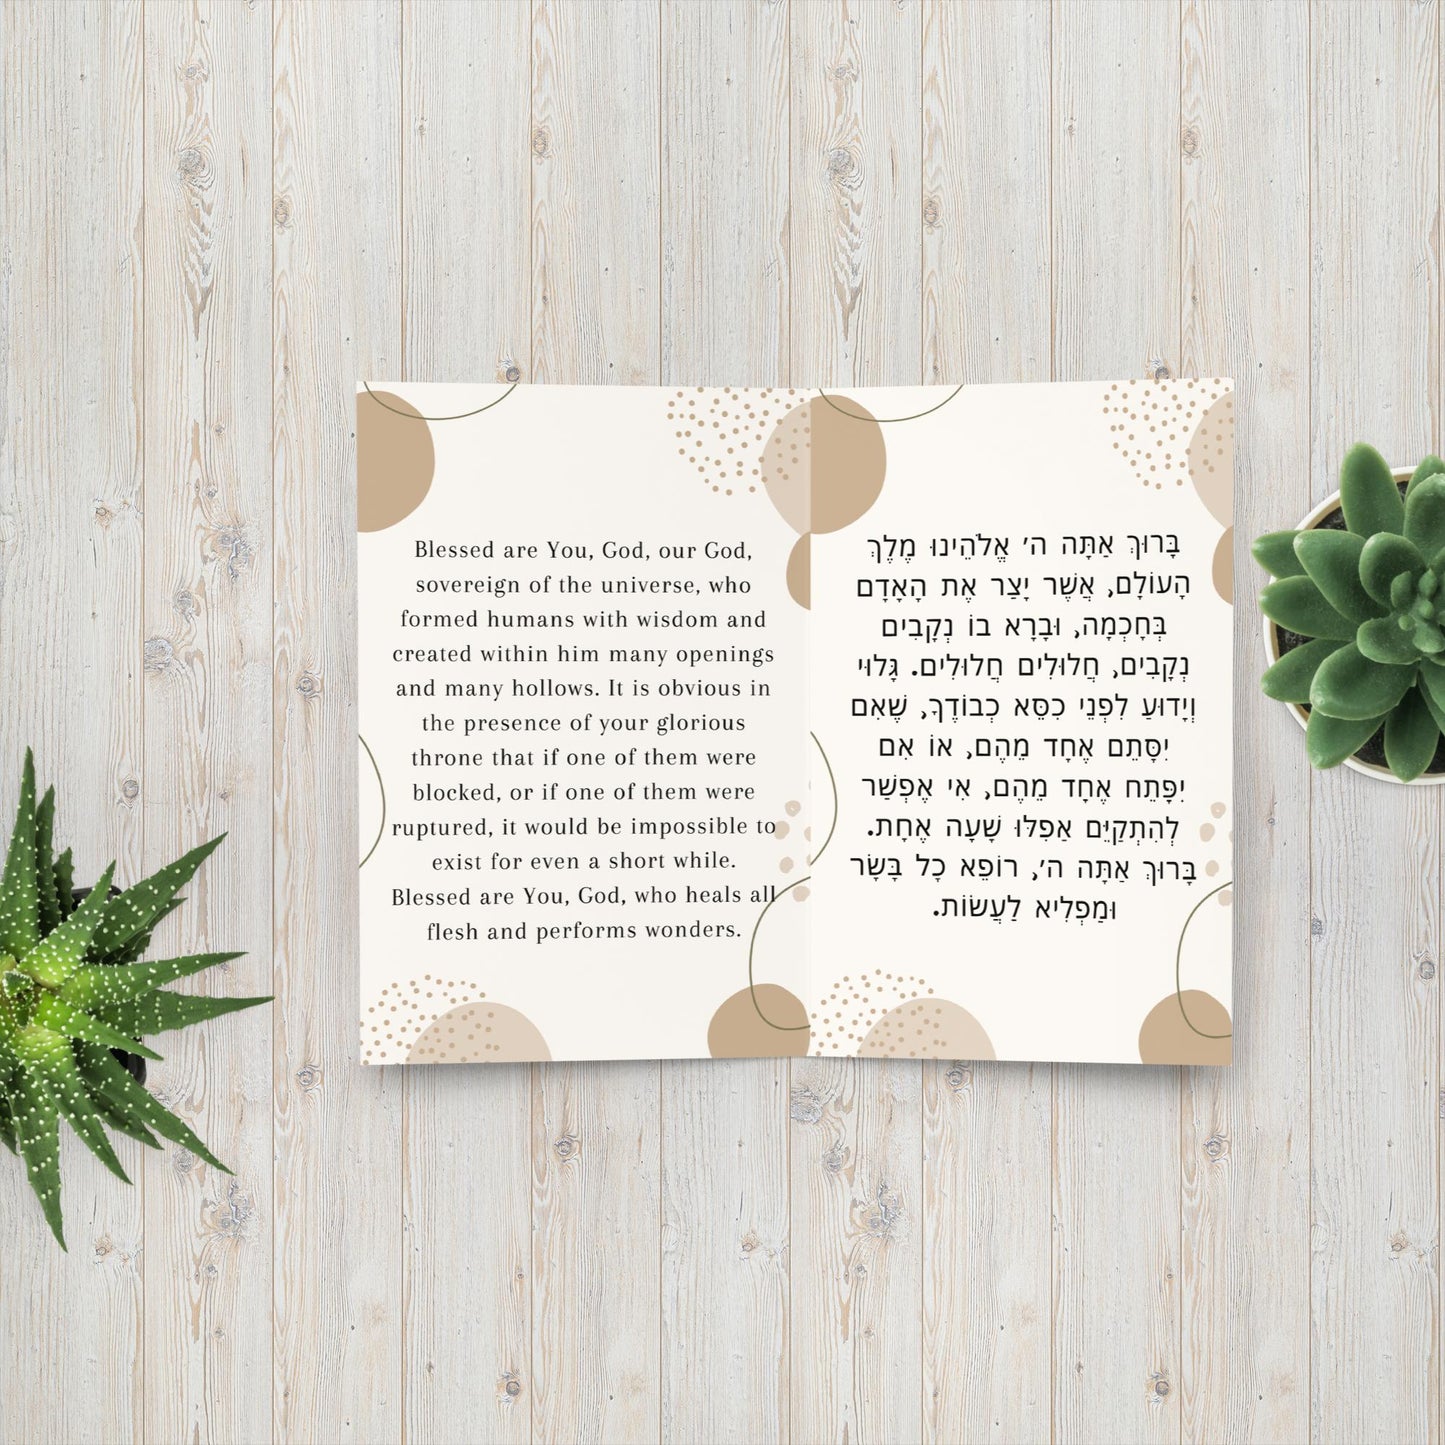 Blessed are You, God, our God,
sovereign of the universe, who
formed humans with wisdom and
created within him many openings
and many hollows. It is obvious in
the presence of your glorious
throne that if one of them were
blocked, or if one of them were
ruptured, it would be impossible to
exist for even a short while.
Blessed are You, God, who heals all
flesh and performs wonders.
בָּרוּךְ אַתָּה ה׳ אֱלֹהֵינוּ מֶלֶךְ
הָעוֹלָם, אֲשֶׁר יָצַר אֶת הָאָדָם
בְּחָכְמָה, וּבָרָא בוֹ נְקָבִים
נְקָבִים, חֲלוּלִים חֲלוּלִים. גָּלוּי
וְיָדוּעַ לִפְנֵי כִסֵּא כְבוֹדֶךָ, שֶׁאִם
יִסָּתֵם אֶחָד מֵהֶם, אוֹ אִם
יִפָּתֵחַ אֶחָד מֵהֶם, אִי אֶפְשַׁר
לְהִתְקַיֵּם אַפִלּוּ שָׁעָה אֶחָת.
בָּרוּךְ אַתָּה ה׳, רוֹפֵא כָל בָּשָׂר
וּמַפְלִיא לַעֲשׂוֹת.